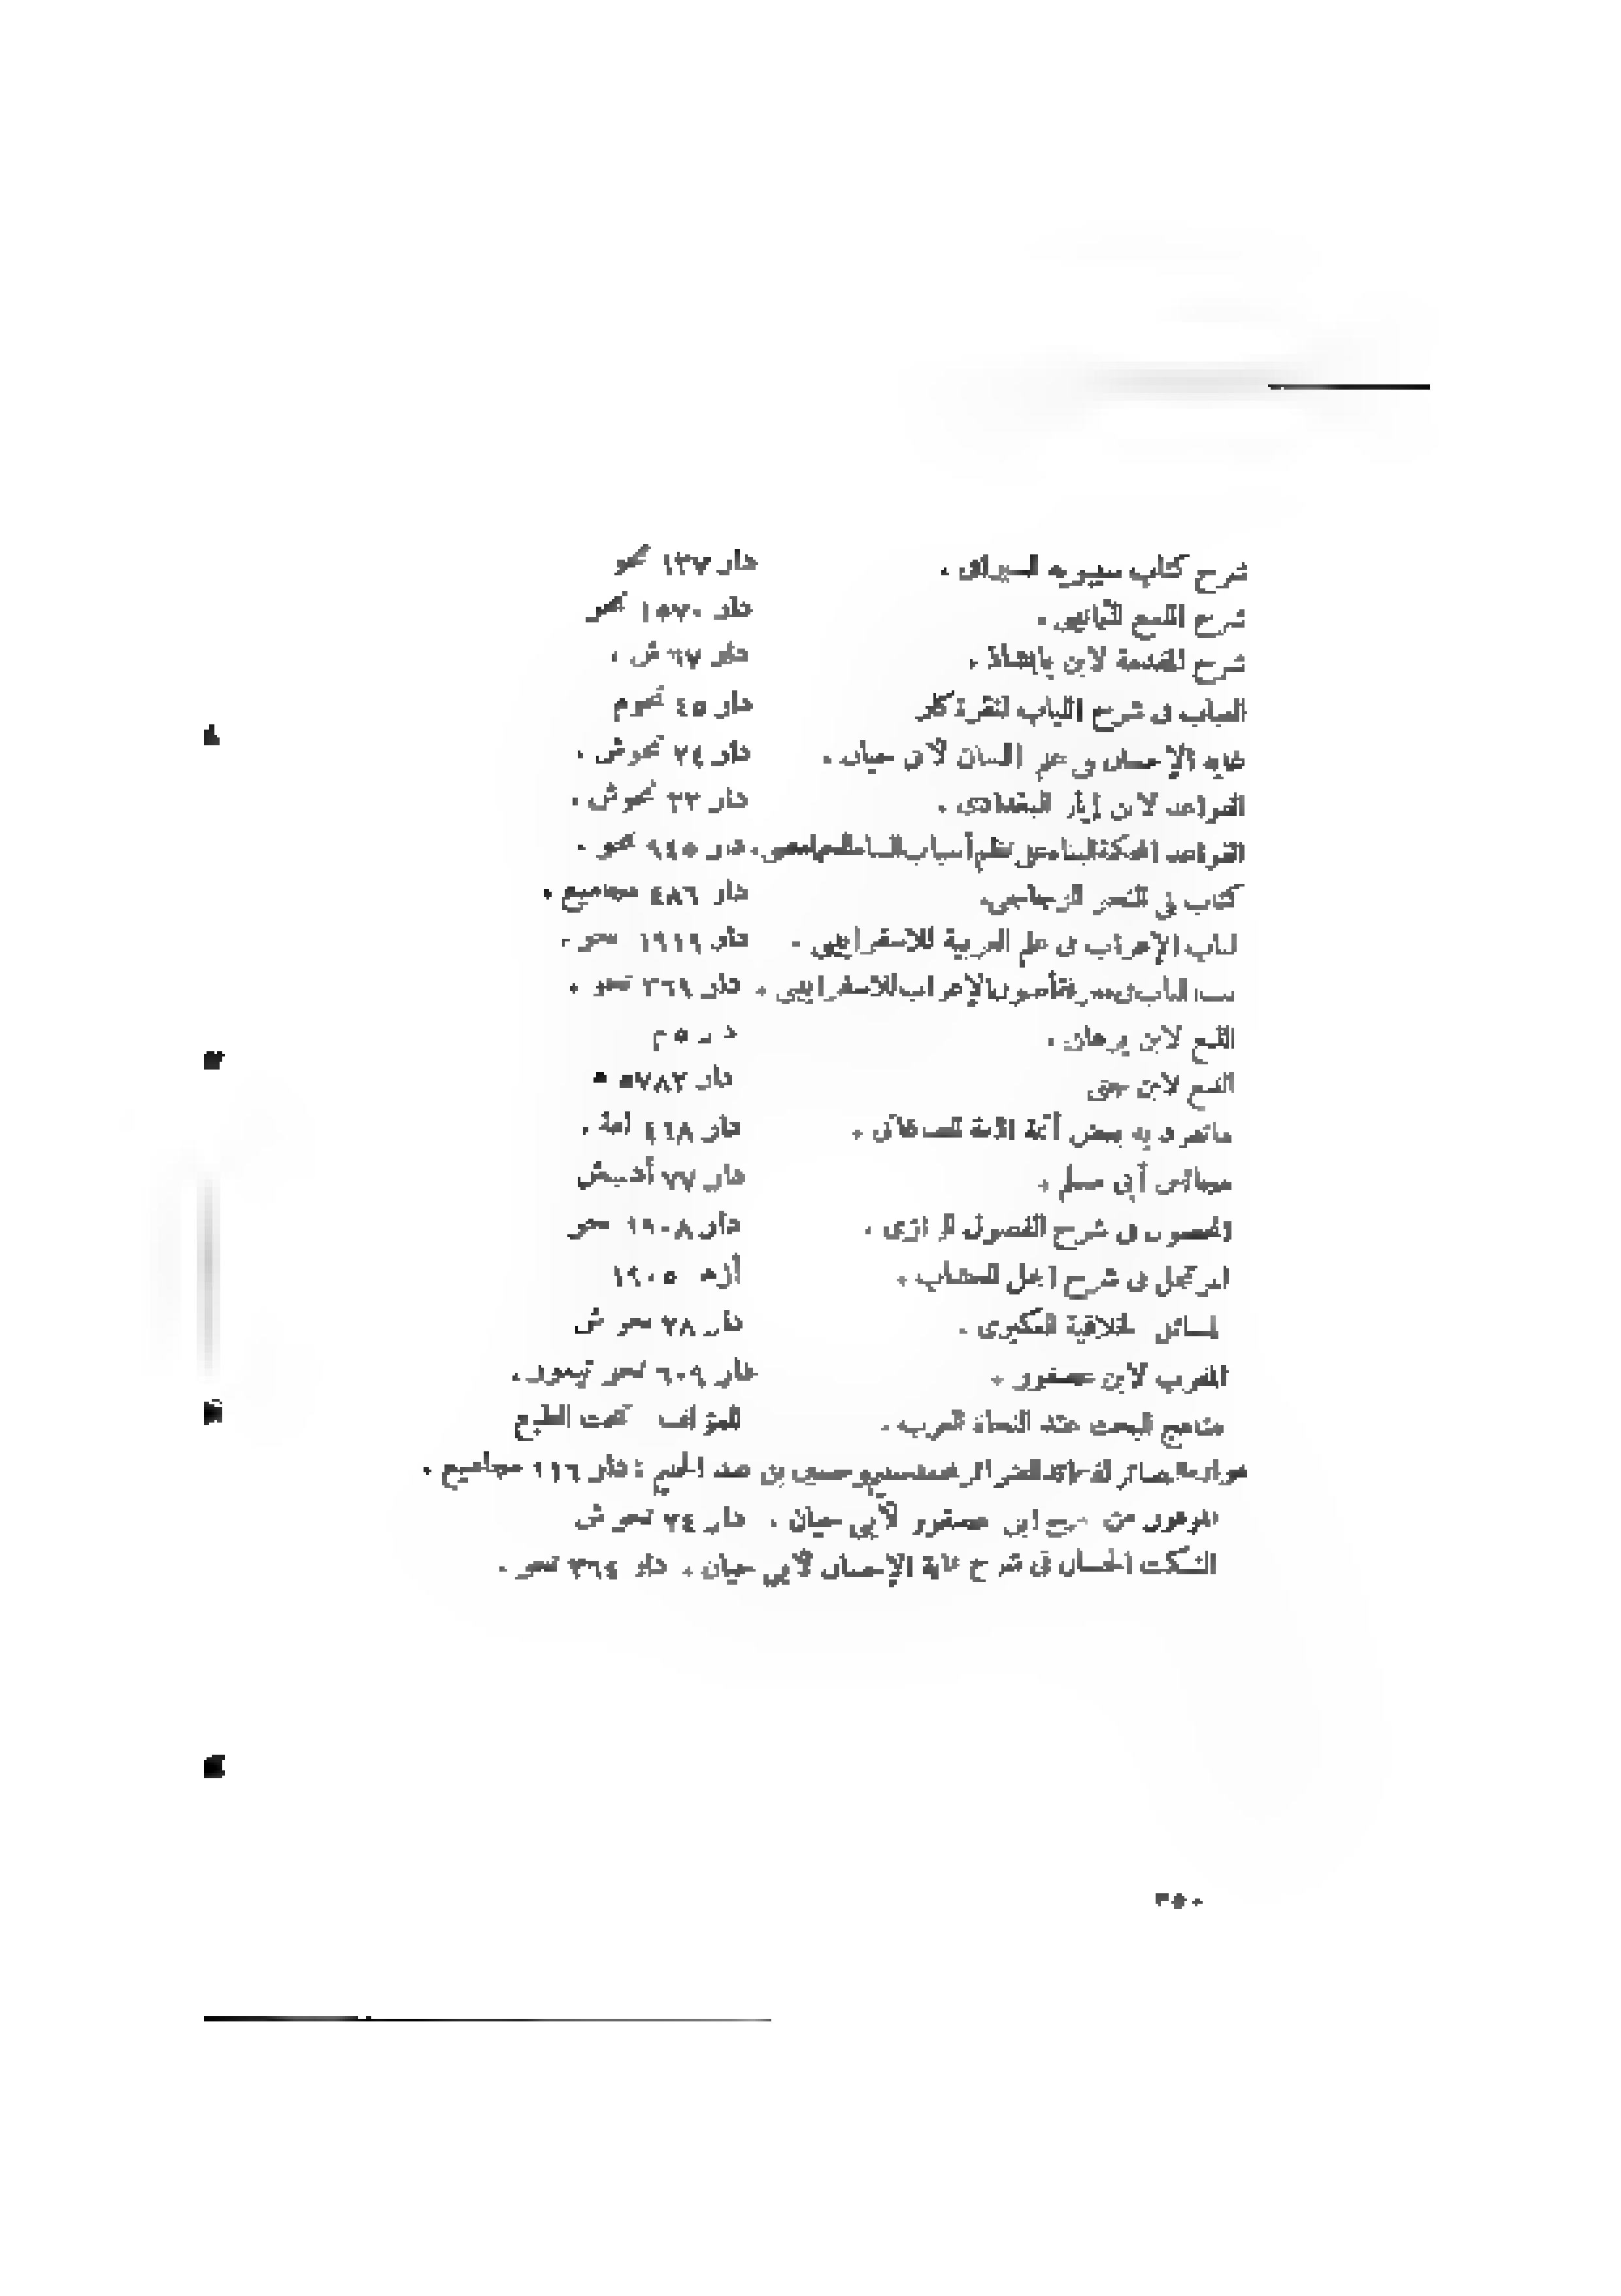 شرح كتاب سيبويه للسيرافى . دار ١٣٧ نحو
شرح اللمع للثمانينى . دار ١٥٧٠ نحو
شرح المقدمة لابن بابشاذ . دار ٦٧ ش .
العباب فى شرح اللباب لنقره كار دار ٤٥ نحو م
غاية الإحسان فى علم اللسان لأبى حيان . دار ٢٤ نحو ش .
القواعد لابن إياز البغدادى . دار ٢٢ نحو ش .
القواعد دار ٩٤٥ نحو .
كتاب فى النحو للزجاجى. دار ٤٨٦ مجاميع .
لباب الإعراب فى علم العربية للاسفرايينى . دار ١٩١٩ نحو .
اللباب فى معرفة أصول الإعراب للاسفرايينى . دار ٣٦٩ نحو .
اللمع لابن برهان . ٥ م
اللمع لابن جنى دار ٥٧٨٢ ه
ما تفرد به بعض أئمة اللغة للصاغانى . دار ٤١٨ لغة .
مجالس أبى مسلم . دار ٧٧ أدب ش
المحصول فى شرح الفصول للرازى . دار ١٩٠٨ نحو
المرتجل فى شرح الجمل للخشاب . أزهر ١٩٠٥
المسائل الخلافية للعكبرى . دار ٢٨ نحو ش
المقرب لابن عصفور . دار ٦٠٩ نحو تيمور .
مناهج البحث عند النحاة العرب . للمؤلف تحت الطبع
موارد البصائر لفرائد الضرائر لمحمد سليم بن حسين بن عبد الحليم : دار ١١٦ مجاميع .
الموفور من شرح ابن عصفور لأبى حيان . دار ٢٤ نحو ش
النكت الحسان فى شرح غاية الإحسان لأبى حيان . دار ٣٦٤ نحو .
٣٥٠